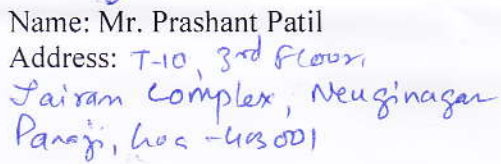 Name: Mr. Prashant Patil
Address: T-10, 3rd Floor,
Jairam Complex, Neuginagar
Panaji, Goa - 403001